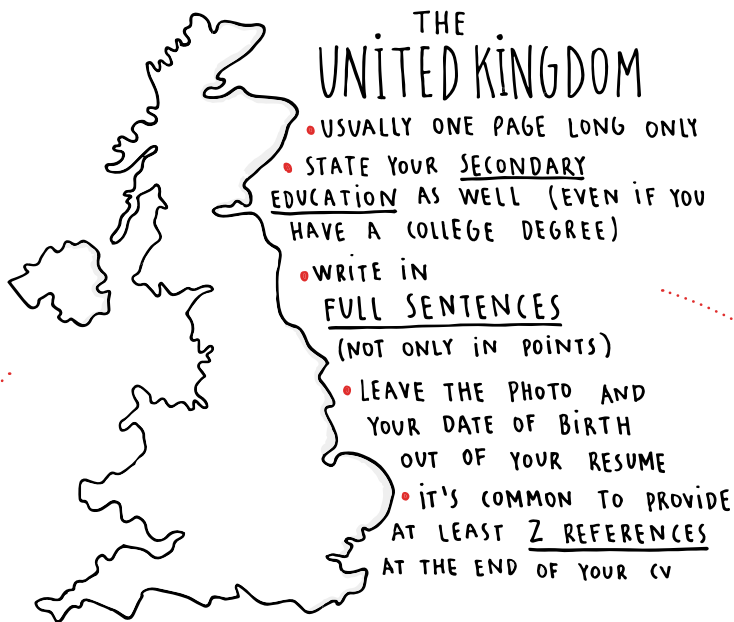 THE
UNiTED KiNGDOM
• USUALLY ONE PAGE LONG ONLY
• STATE YOUR SECONDARY
EDUCATION AS WELL (EVEN iF YOU
HAVE A COLLEGE DEGREE)
• WRiTE iN
FULL SENTENCES
(NOT ONLY iN POiNTS)
• LEAVE THE PHOTO AND
YOUR DATE OF BiRTH
OUT OF YOUR RESUME
• iT'S COMMON TO PROViDE
AT LEAST 2 REFERENCES
AT THE END OF YOUR CV